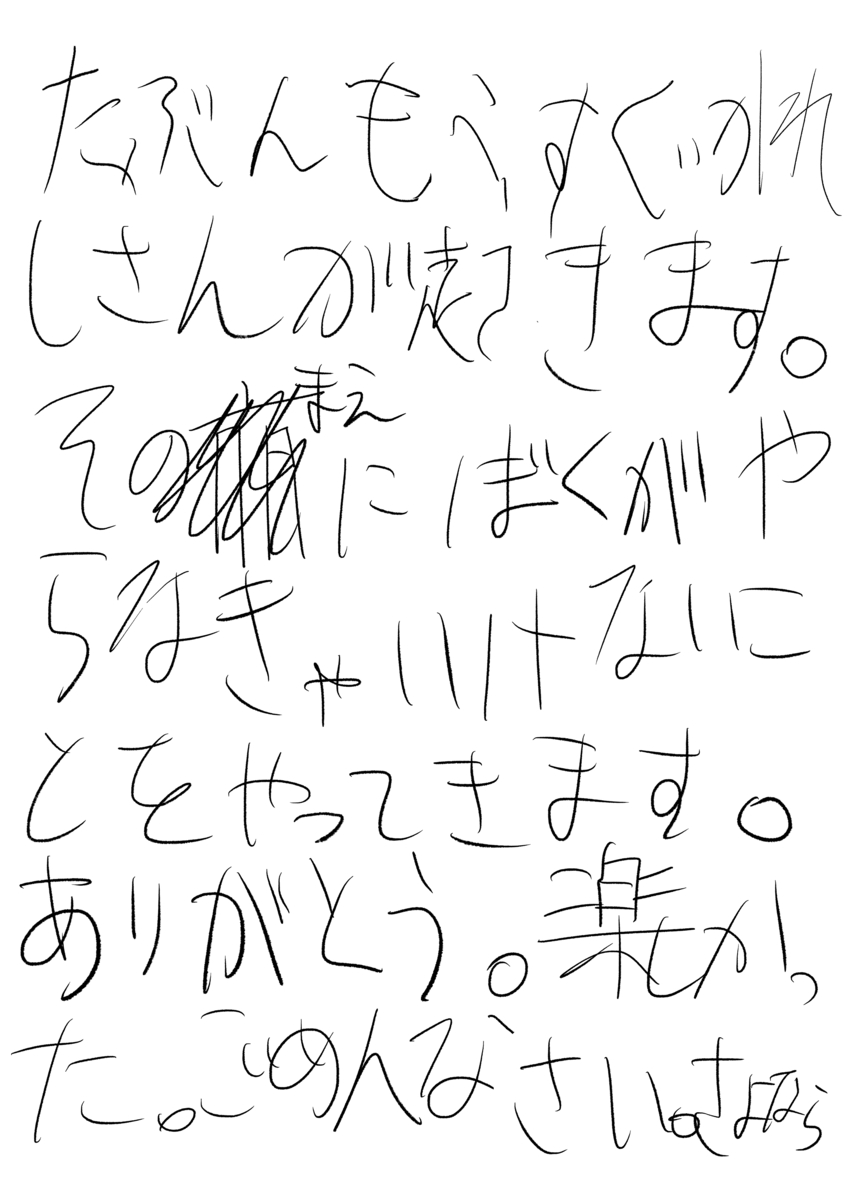 たぶんもうすぐかれ
しさんが起きます。
そのまえにぼくがや
らなきゃいけないこ
とをやってきます。
ありがとう。楽しかっ
た。ごめんなさい。さよなら